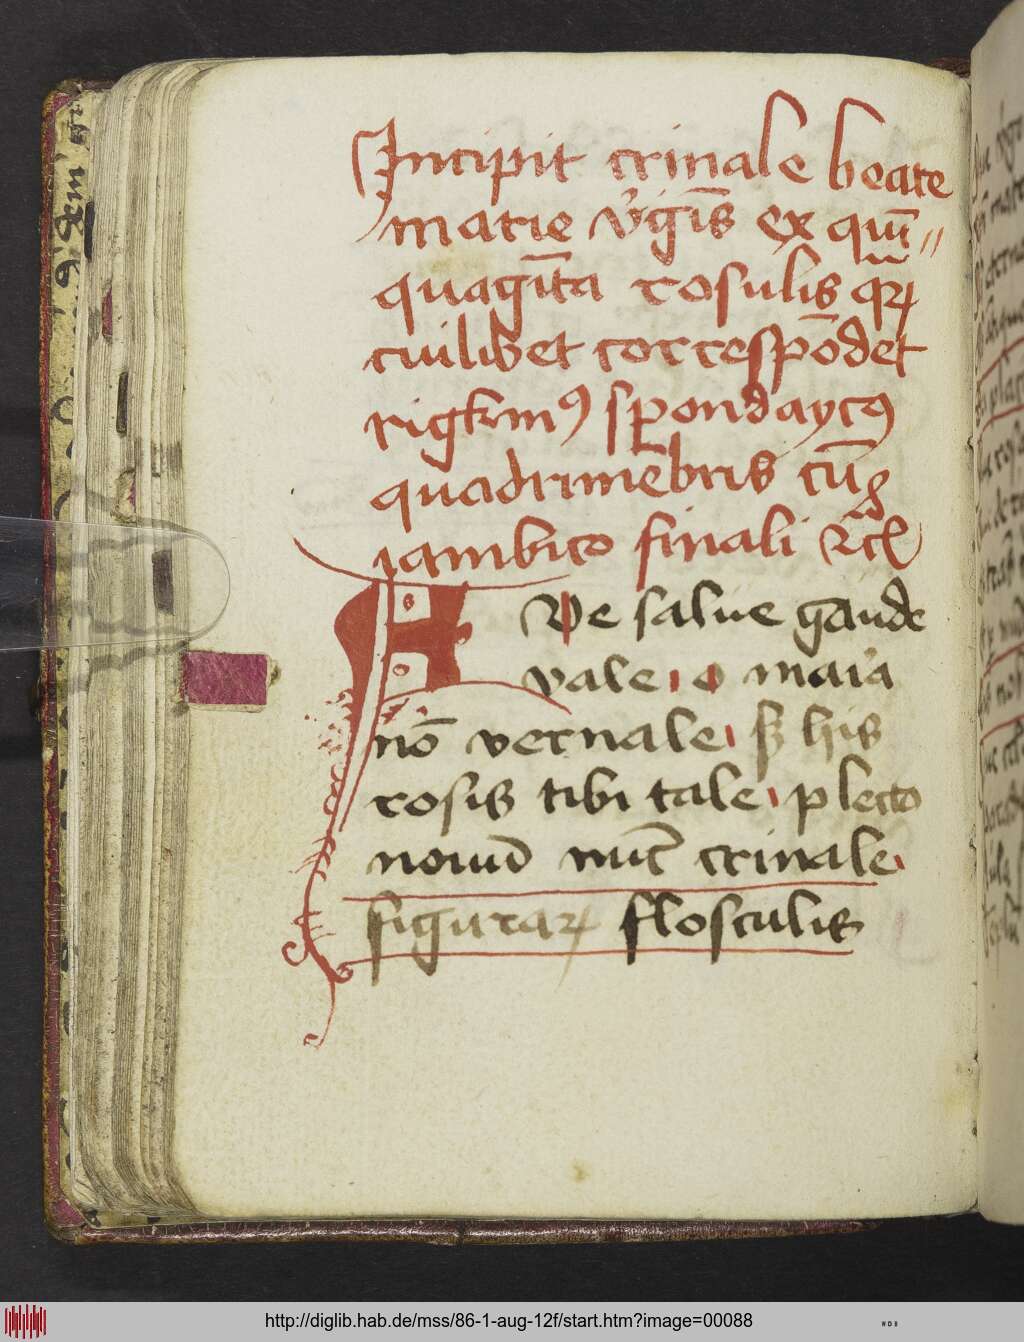 Incipit crinale beate
marie v̓gīs ex quī〃
quagīta rosulis qr̄ꝝ
cuilibet correspōdet
rigkmꝰ spondaycꝰ
quadrimēbris cū
iambico finali
Ave salue gaude
vale o maria
nō vernale sꝫ his
rosis tibi tale plecto
nouū nūc crinale
figuraꝝ flosculis
http://diglib.hab.de/mss/86-1-aug-12f/start.htm?image=00088